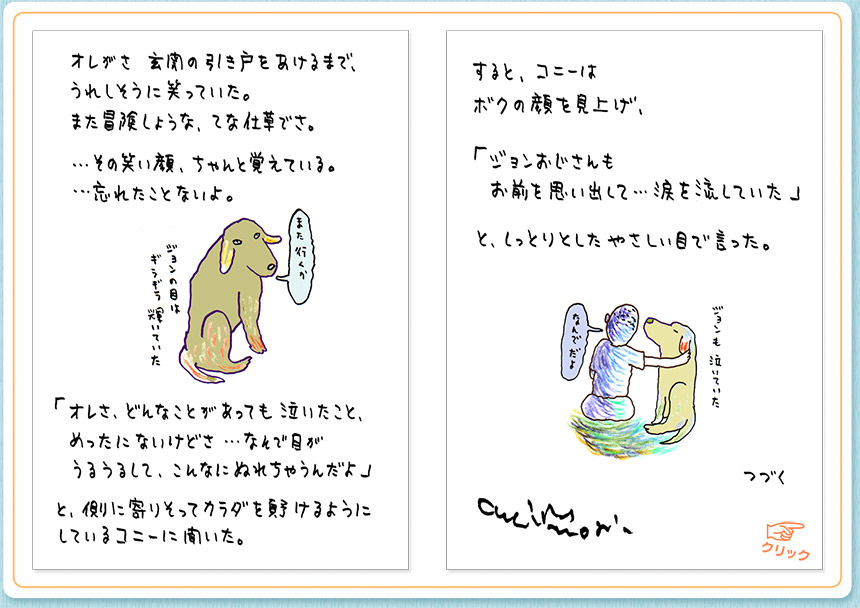 オレがさ 玄関の引き戸をあけるまで、
うれしそうに笑っていた。
また冒険しような、てな仕草でさ。
…その笑い顔、ちゃんと覚えている。
…忘れたことないよ。
また行くか
ジョンの目は
ギラギラ 輝いていた
「オレさ、どんなことがあっても 泣いたこと、
めったにないけどさ…なんで目が
うるうるして、こんなにぬれちゃうんだよ」
と、側に寄りそってカラダを預けるように
しているコニーに聞いた。
すると、コニーは
ボクの顔を見上げ、
「ジョンおじさんも
お前を思い出して…涙を流していた」
と、しっとりとした やさしい目で言った。
なんでだよ
ジョンも 泣いていた
つづく
クリック